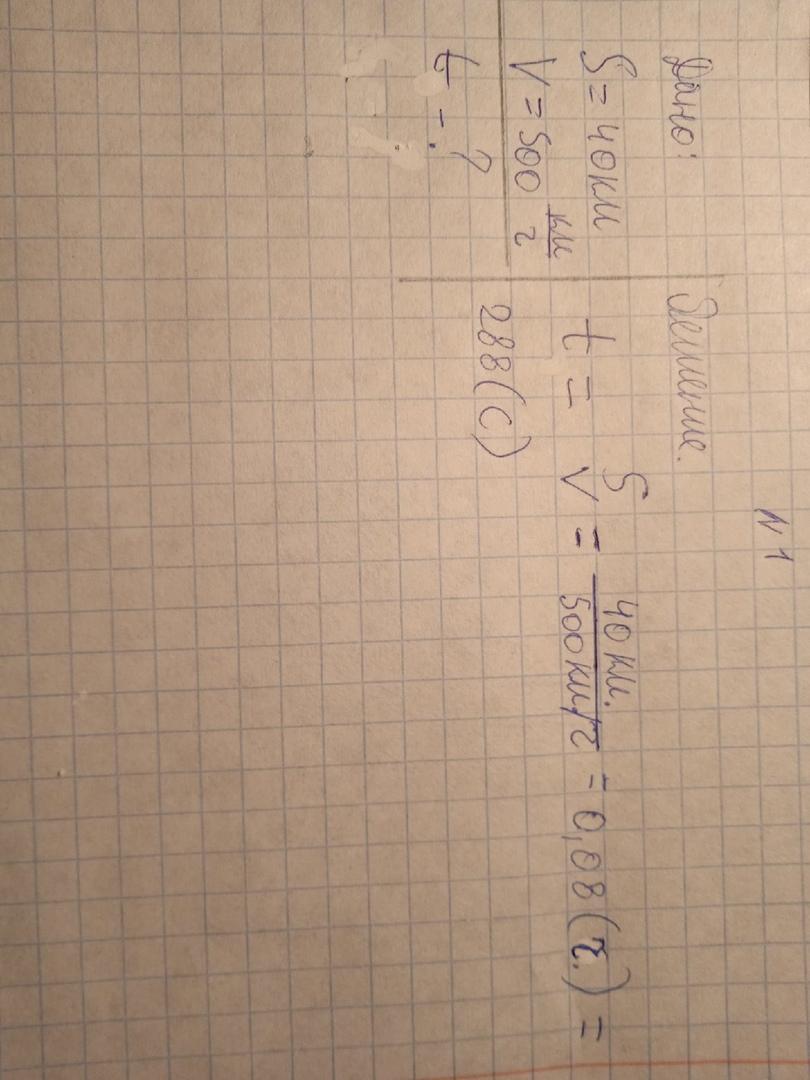 N 1
Дано:
S = 40 км
V = 500 км/ч
t - ?
Решение.
t = S/V = 40 км./500 км/ч = 0,08 (ч.) =
288 (с)